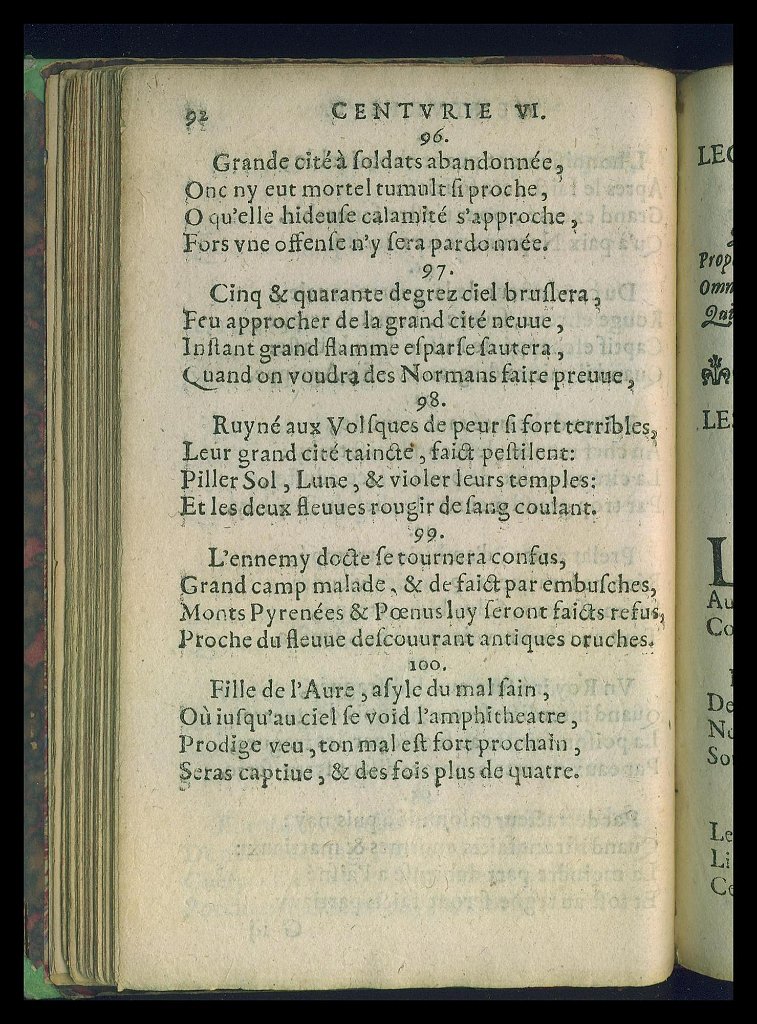 92 CENTVRIE VI.
96.
Grande cité à ſoldats abandonnée,
Onc ny eut mortel tumult ſi proche,
O qu'elle hideuſe calamité s'approche,
Fors vne offenſe n'y ſera pardonnée.
97.
Cinq & quarante degrez ciel bruſlera,
Feu approcher de la grand cité neuue,
Inſtant grand flamme eſparſe ſautera,
Quand on voudra des Normans faire preuue,
98.
Ruyné aux Volſques de peur ſi fort terribles,
Leur grand cité taincte, faict peſtilent:
Piller Sol, Lune, & violer leurs temples:
Et les deux fleuues rougir de ſang coulant.
99.
L'ennemy docte ſe tournera confus,
Grand camp malade, & de faict par embuſches,
Monts Pyrenées & Pœnus luy ſeront faicts refus,
Proche du fleuue deſcouurant antiques oruches.
100.
Fille de l'Aure, aſyle du mal ſain,
Où iuſqu'au ciel ſe void l'amphitheatre,
Prodige veu, ton mal eſt fort prochain,
Seras captiue, & des fois plus de quatre.